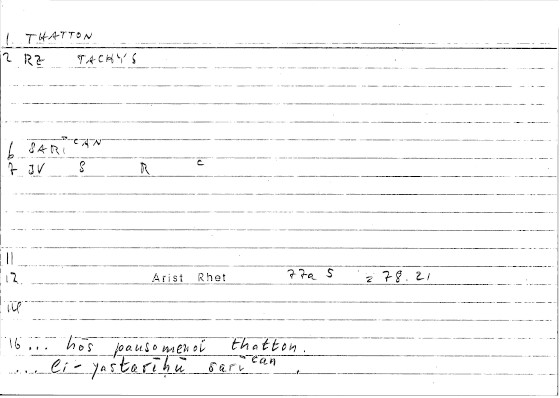 1 THATTON
2 RZ TACHYS
6 SARĪCAN
7 JV S R C
11
12 Arist Rhet 77a 5 = 78.21
14
16 ... hōs pausomenoi thatton.
... li-yastarīḥū sarīcan .